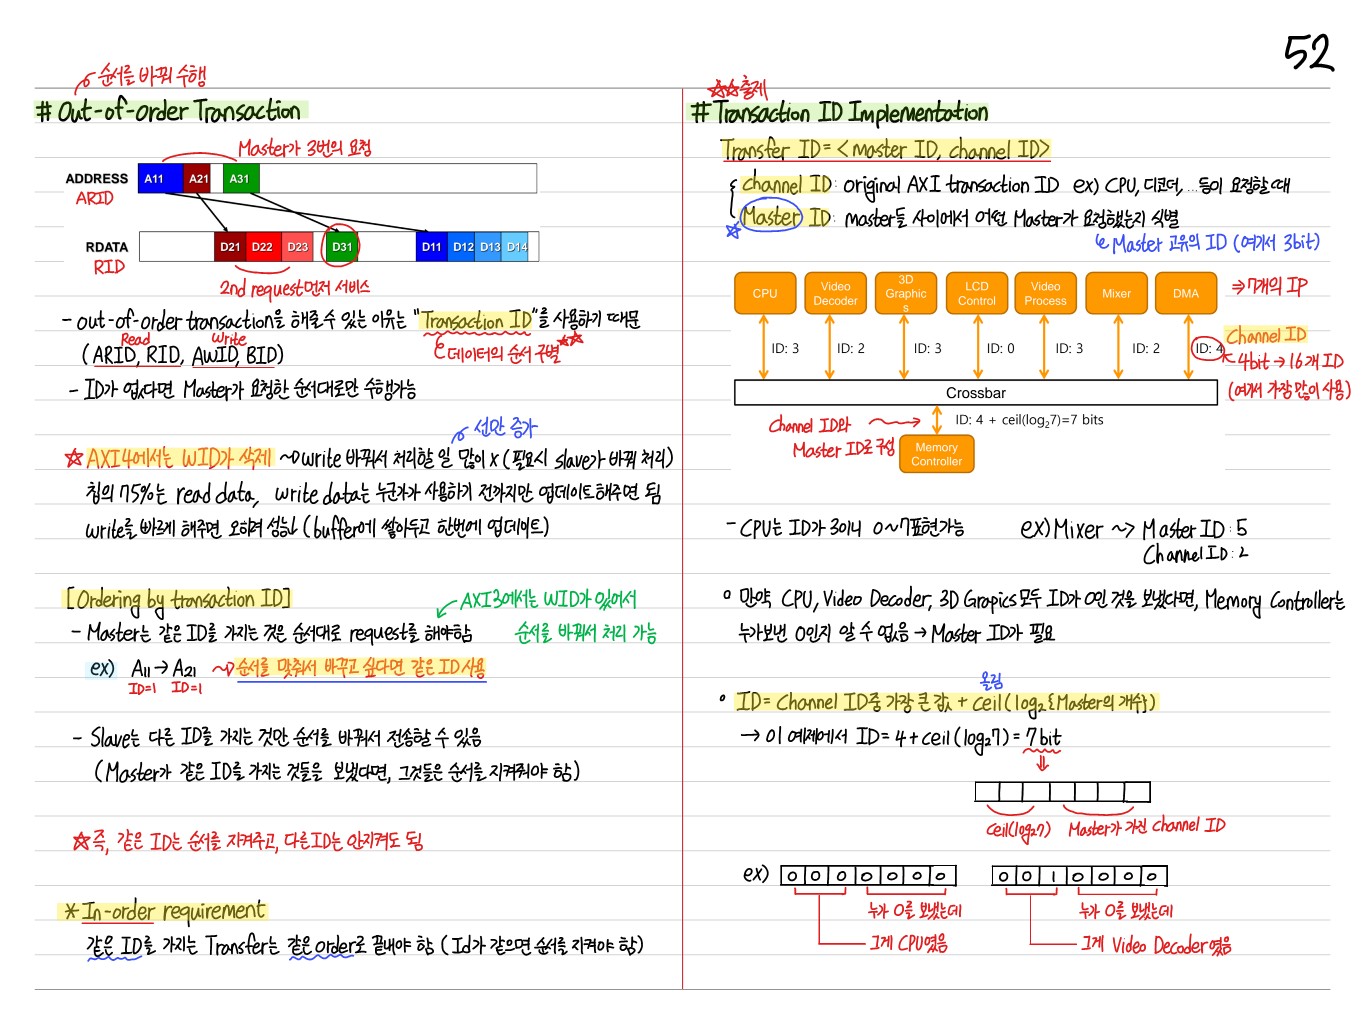 52
순서를 바꿔 수행
# Out-of-order Transaction
Master가 3번의 요청
ADDRESS A11 A21 A31
ARID
RDATA D21 D22 D23 D31 D11 D12 D13 D14
RID
2nd request먼저 서비스
- out-of-order transaction을 해줄수 있는 이유는 "Transaction ID"를 사용하기 때문
Read Write
(ARID, RID, AWID, BID)
데이터의 순서 구별 ☆☆
- ID가 없다면 Master가 요청한 순서대로만 수행가능
선만 증가
☆ AXI4에서는 WID가 삭제 ~> write 바꿔서 처리할 일 많이 x (필요시 slave가 바꿔 처리)
칩의 75%는 read data, write data는 누군가가 사용하기 전까지만 업데이트해주면 됨
write를 빠르게 해주면 오히려 성능↓ (buffer에 쌓아두고 한번에 업데이트)
[Ordering by transaction ID]
AXI3에서는 WID가 있어서
순서를 바꿔서 처리 가능
- Master는 같은 ID를 가지는 것은 순서대로 request를 해야함
ex) A11 → A21 ~> 순서를 맞춰서 바꾸고 싶다면 같은 ID 사용
ID=1 ID=1
- Slave는 다른 ID를 가지는 것만 순서를 바꿔서 전송할 수 있음
(Master가 같은 ID를 가지는 것들을 보냈다면, 그것들은 순서를 지켜줘야 함)
☆ 즉, 같은 ID는 순서를 지켜주고, 다른ID는 안지켜도 됨
* In-order requirement
같은 ID를 가지는 Transfer는 같은 order로 끝내야 함 (Id가 같으면 순서를 지켜야 함)
☆☆출제
# Transaction ID Implementation
Transfer ID = <master ID, channel ID>
channel ID: original AXI transaction ID ex) CPU, 디코더, ... 등이 요청할 때
☆ Master ID: master들 사이에서 어떤 Master가 요청했는지 식별
↳ Master 고유의 ID (여기서 3bit)
CPU
Video Decoder
3D Graphics
LCD Control
Video Process
Mixer
DMA
⇒ 7개의 IP
ID: 3 ID: 2 ID: 3 ID: 0 ID: 3 ID: 2 ID: 4
Channel ID
4bit → 16개 ID
(여기서 가장 많이 사용)
Crossbar
ID: 4 + ceil(log₂7)=7 bits
Channel ID와
Master ID로 구성
Memory Controller
- CPU는 ID가 3이니 0~7표현가능
ex) Mixer ~> Master ID: 5
Channel ID: 2
° 만약 CPU, Video Decoder, 3D Grapics 모두 ID가 0인 것을 보냈다면, Memory Controller는
누가보낸 0인지 알 수 없음 → Master ID가 필요
올림
° ID = Channel ID중 가장 큰 값 + ceil(log₂{Master의 개수})
→ 이 예제에서 ID = 4 + ceil(log₂7) = 7bit
ceil(log₂7) Master가 가진 channel ID
ex) 0 0 0 0 0 0 0
누가 0를 보냈는데
그게 CPU였음
0 0 1 0 0 0 0
누가 0를 보냈는데
그게 Video Decoder였음